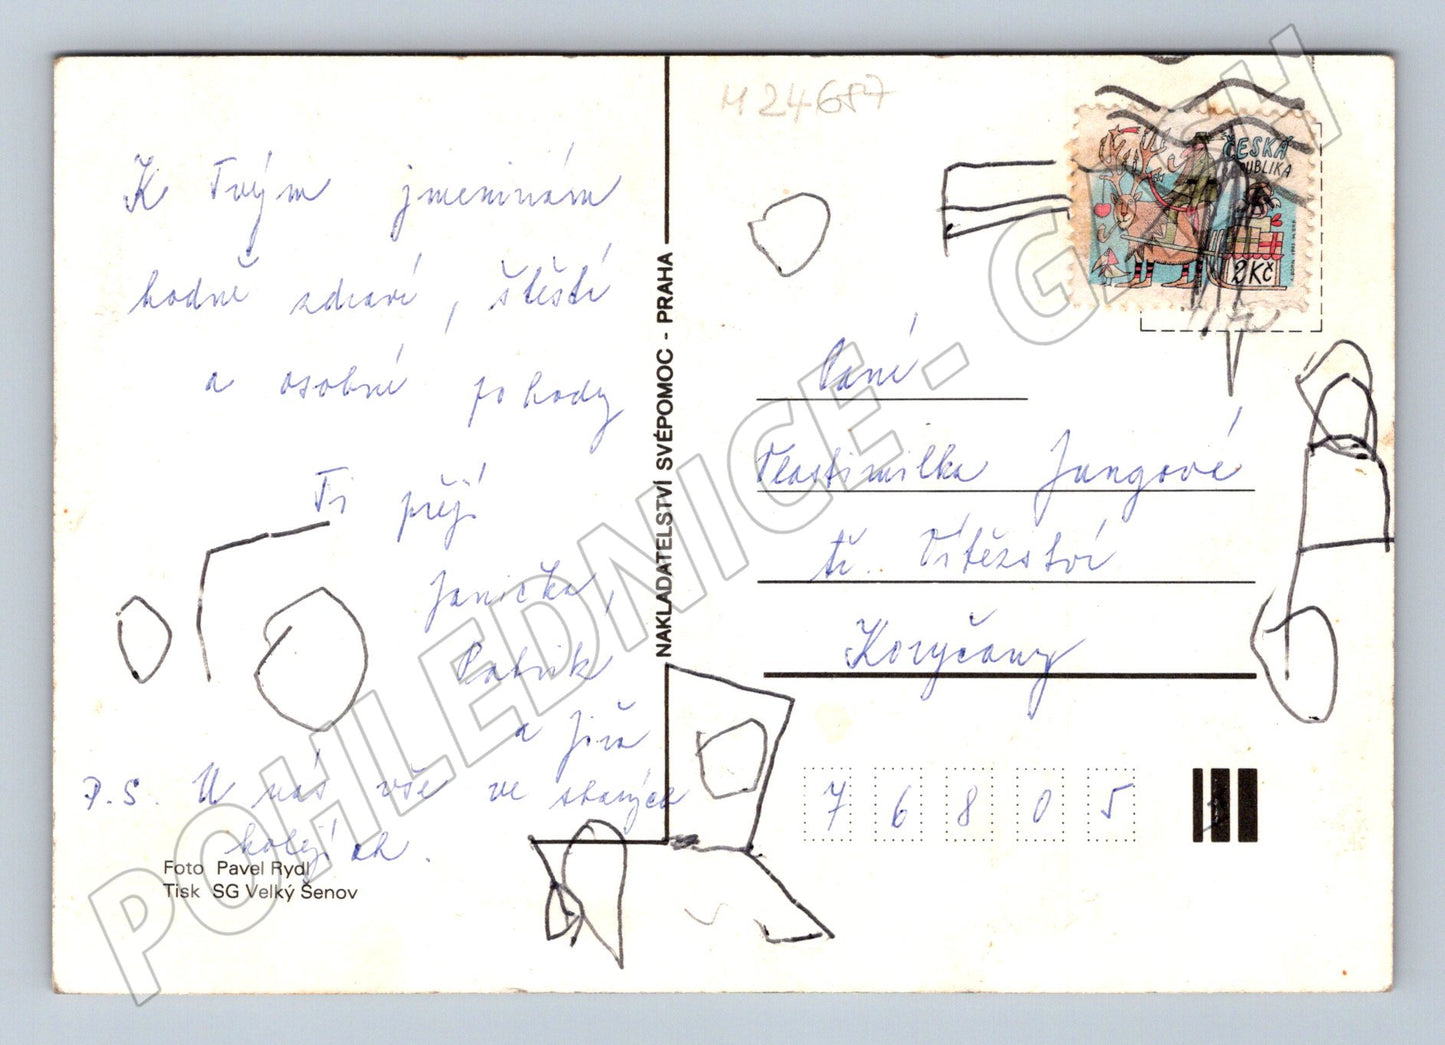 K Tvým jmeninám
hodně zdraví, štěstí
a osobní pohody
Ti přejí
Janička,
Patrik
a Jíra
P.S. U nás vše ve starých
kolejích.
Foto Pavel Rydl
Tisk SG Velký Šenov
NAKLADATELSTVÍ SVÉPOMOC - PRAHA
M 24687
ČESKÁ
REPUBLIKA
2Kč
Paní
Vlastimilka Jungová
tř. Vítězství
Koryčany
76805
POHLEDNICE - G